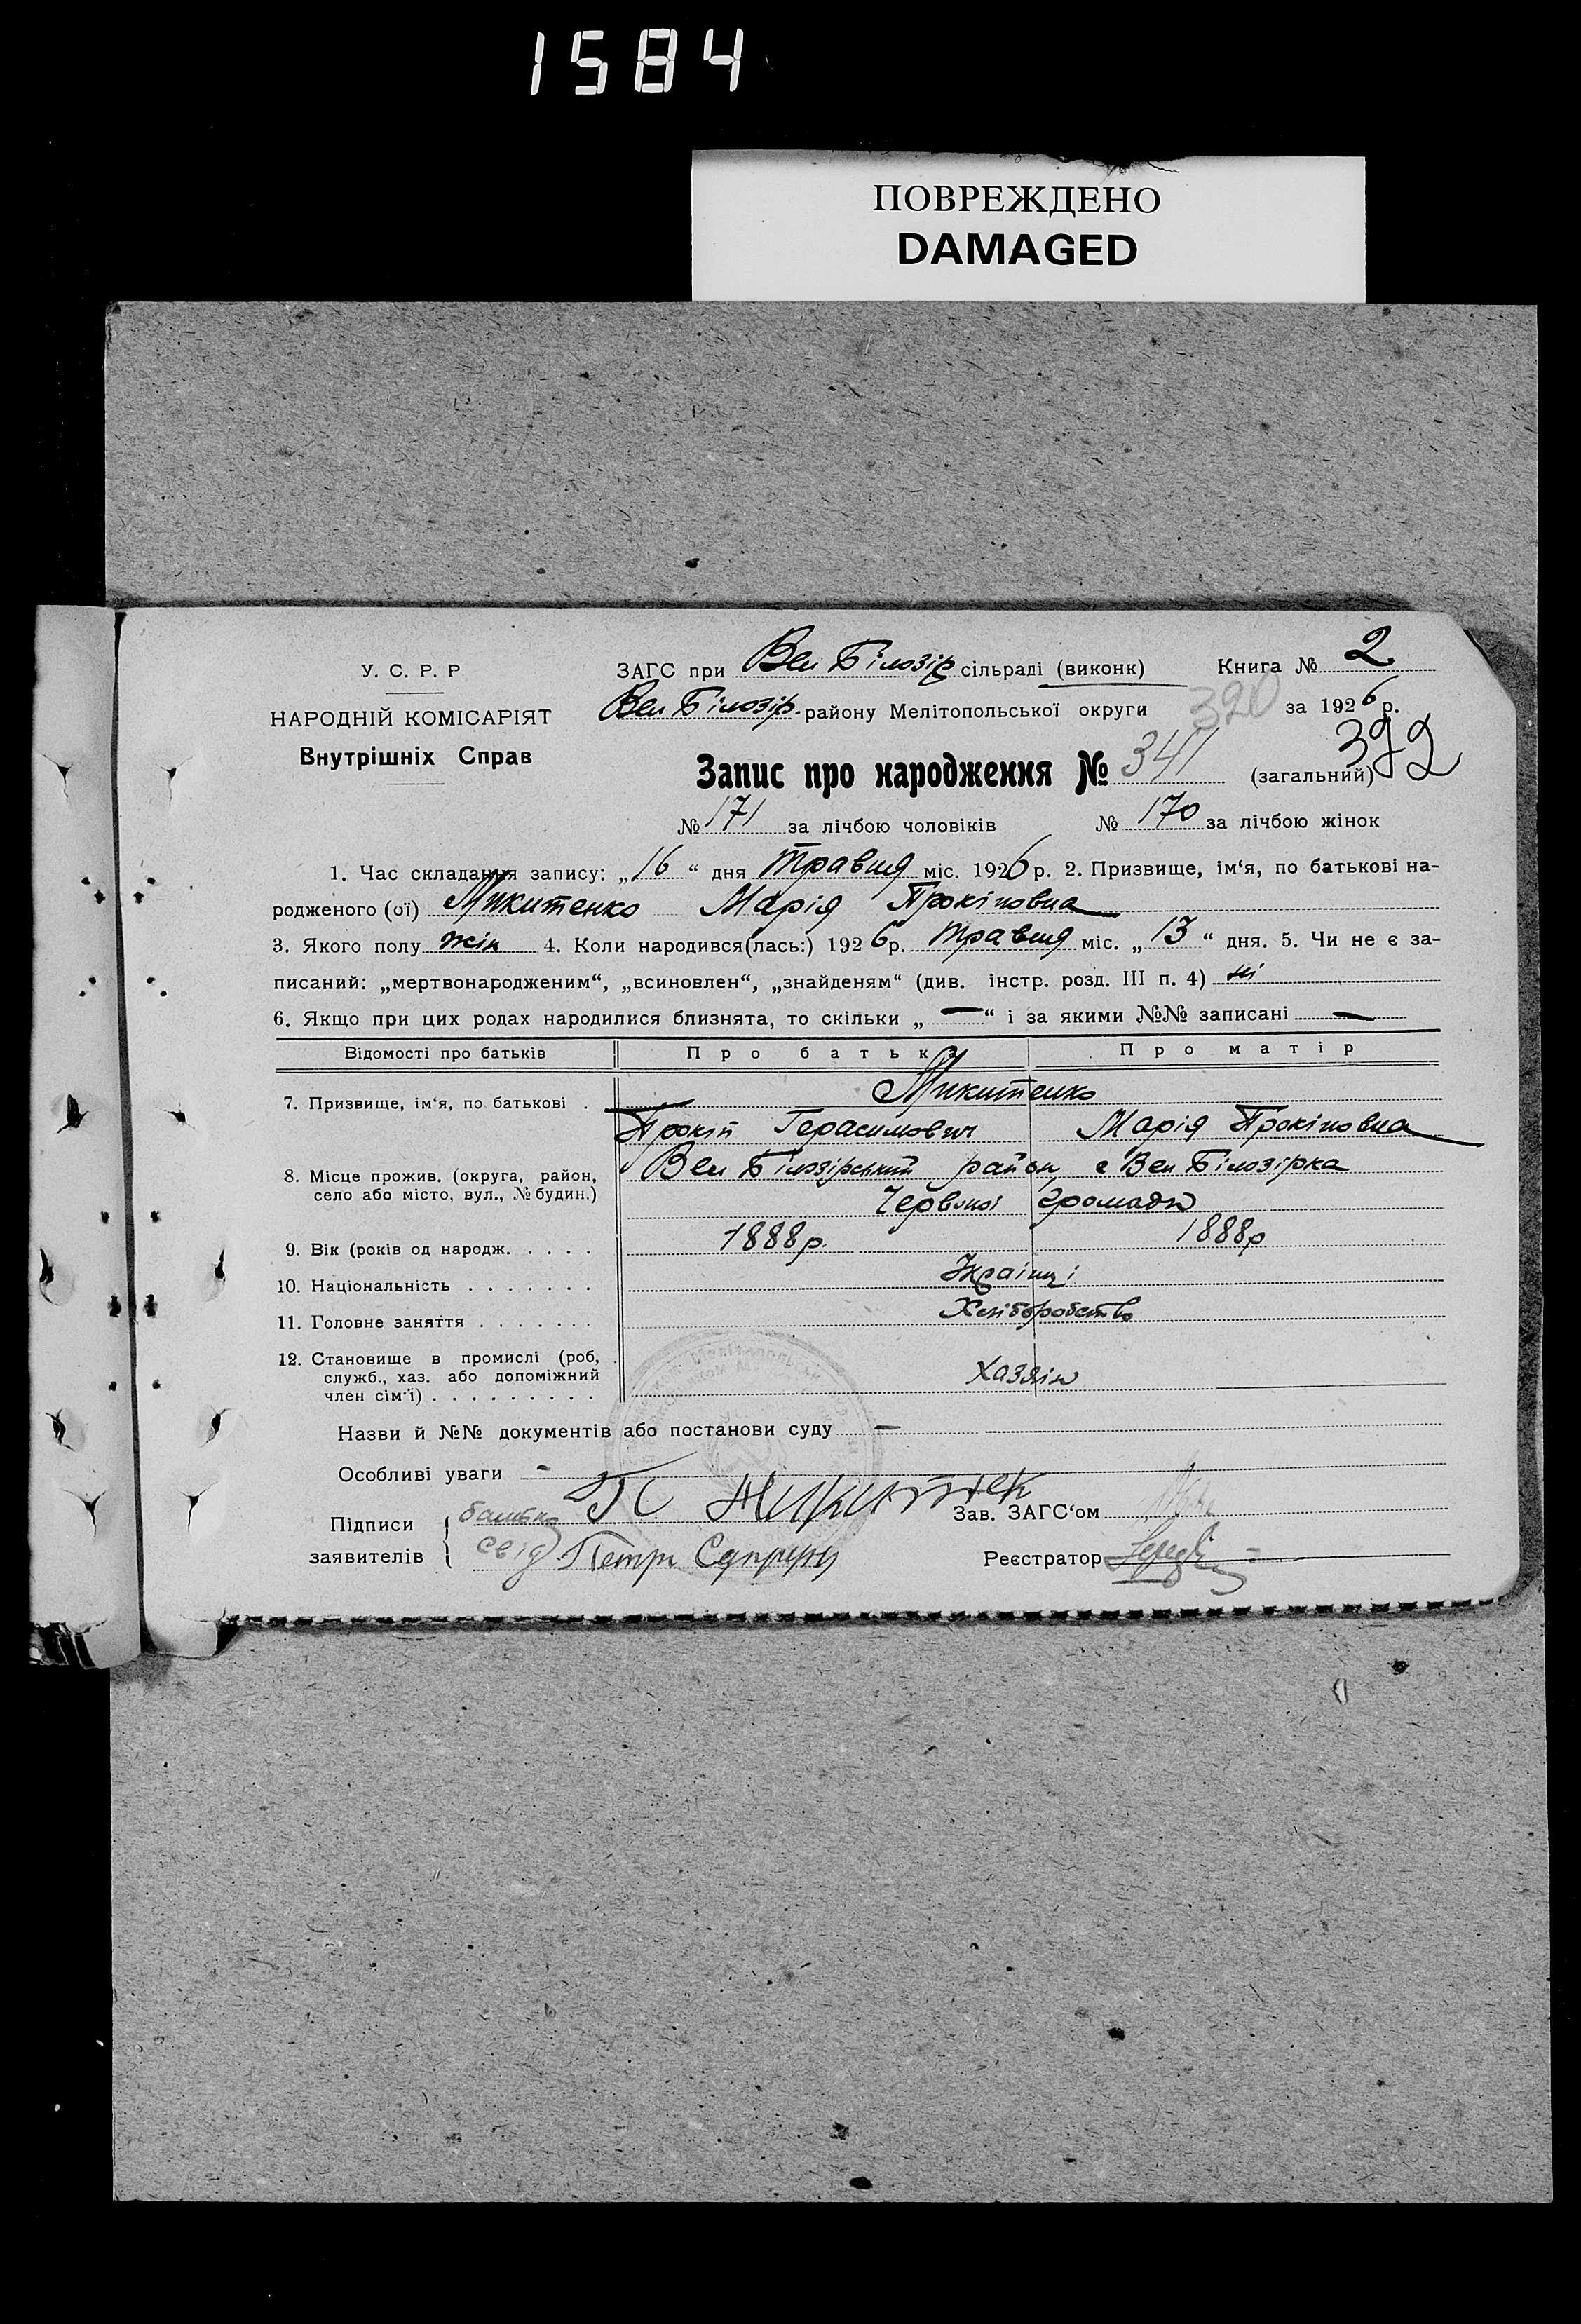 1584
ПОВРЕЖДЕНО
DAMAGED
У. С. Р. Р
НАРОДНІЙ КОМІСАРІЯТ
Внутрішніх Справ
ЗАГС при Вел Білозір сільраді (виконк) Книга № 2
Вел Білозір. району Мелітопольської округи 390 за 1926 р.
392
Запис про народження № 341 (загальний)
№ 171 за лічбою чоловіків № 170 за лічбою жінок
1. Час складання запису: „16“ дня травня міс. 1926 р. 2. Призвище, ім‘я, по батькові на-
родженого (ої) Микитенко Марія Прокіповна
3. Якого полу жін 4. Коли народився(лась:) 1926 р. травня міс. „13“ дня. 5. Чи не є за-
писаний: „мертвонародженим“, „всиновлен“, „знайденям“ (див. інстр. розд. III п. 4) ні
6. Якщо при цих родах народилися близнята, то скільки „—“ і за якими №№ записані —
Відомості про батьків Про батька Про матір
7. Призвище, ім‘я, по батькові . Микитенко
Прокіп Герасимович Марія Прокіповна
8. Місце прожив. (округа, район, село або місто, вул., № будин.) Вел Білозірський район с Вел Білозірка
Червоної громади
9. Вік (років од народж. . . . . 1888р. 1888р
10. Національність . . . . . . . Українці
11. Головне заняття . . . . . . . Хліборобство
12. Становище в промислі (роб, служб., хаз. або допоміжний член сім‘ї) . . . . . . . . . Хазяїн
Назви й №№ документів або постанови суду —
Особливі уваги -
Підписи заявителів { батько П Микитенк
свід Петро
Зав. ЗАГС‘ом
Реєстратор